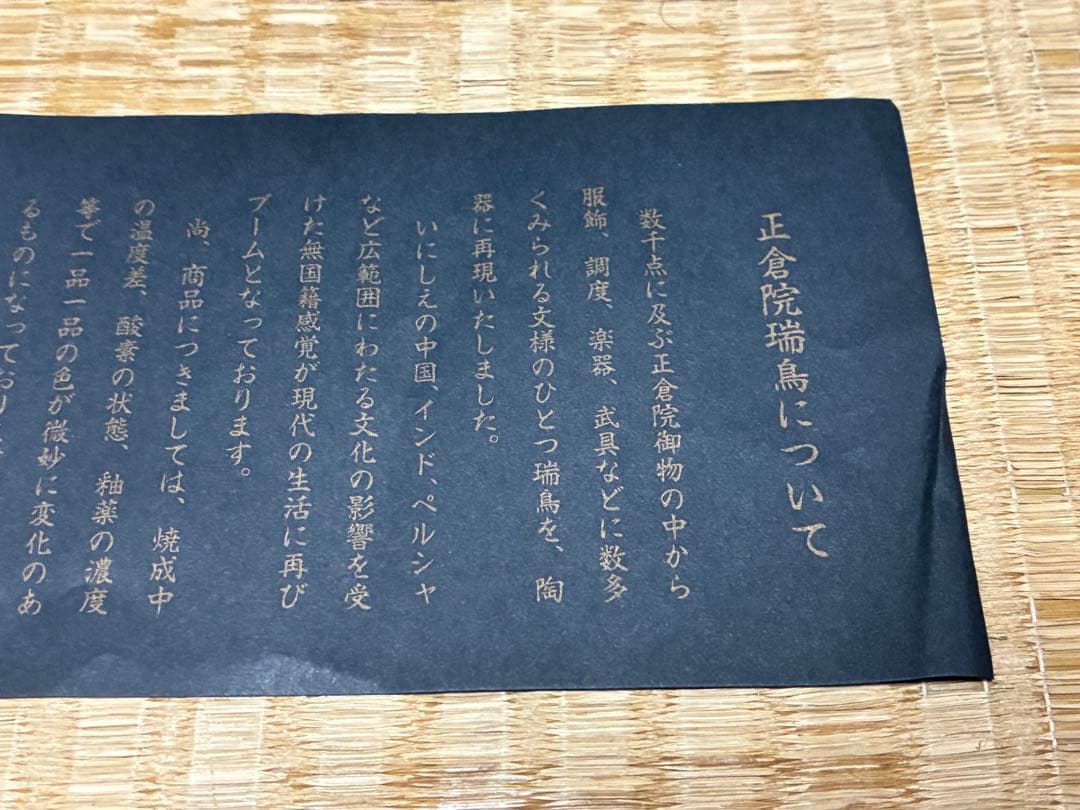 正倉院瑞鳥について
数千点に及ぶ正倉院御物の中から
服飾、調度、楽器、武具などに数多
くみられる文様のひとつ瑞鳥を、陶
器に再現いたしました。
いにしえの中国、インド、ペルシャ
など広範囲にわたる文化の影響を受
けた無国籍感覚が現代の生活に再び
ブームとなっております。
尚、商品につきましては、焼成中
の温度差、酸素の状態、釉薬の濃度
等で一品一品の色が微妙に変化のあ
るものになっており